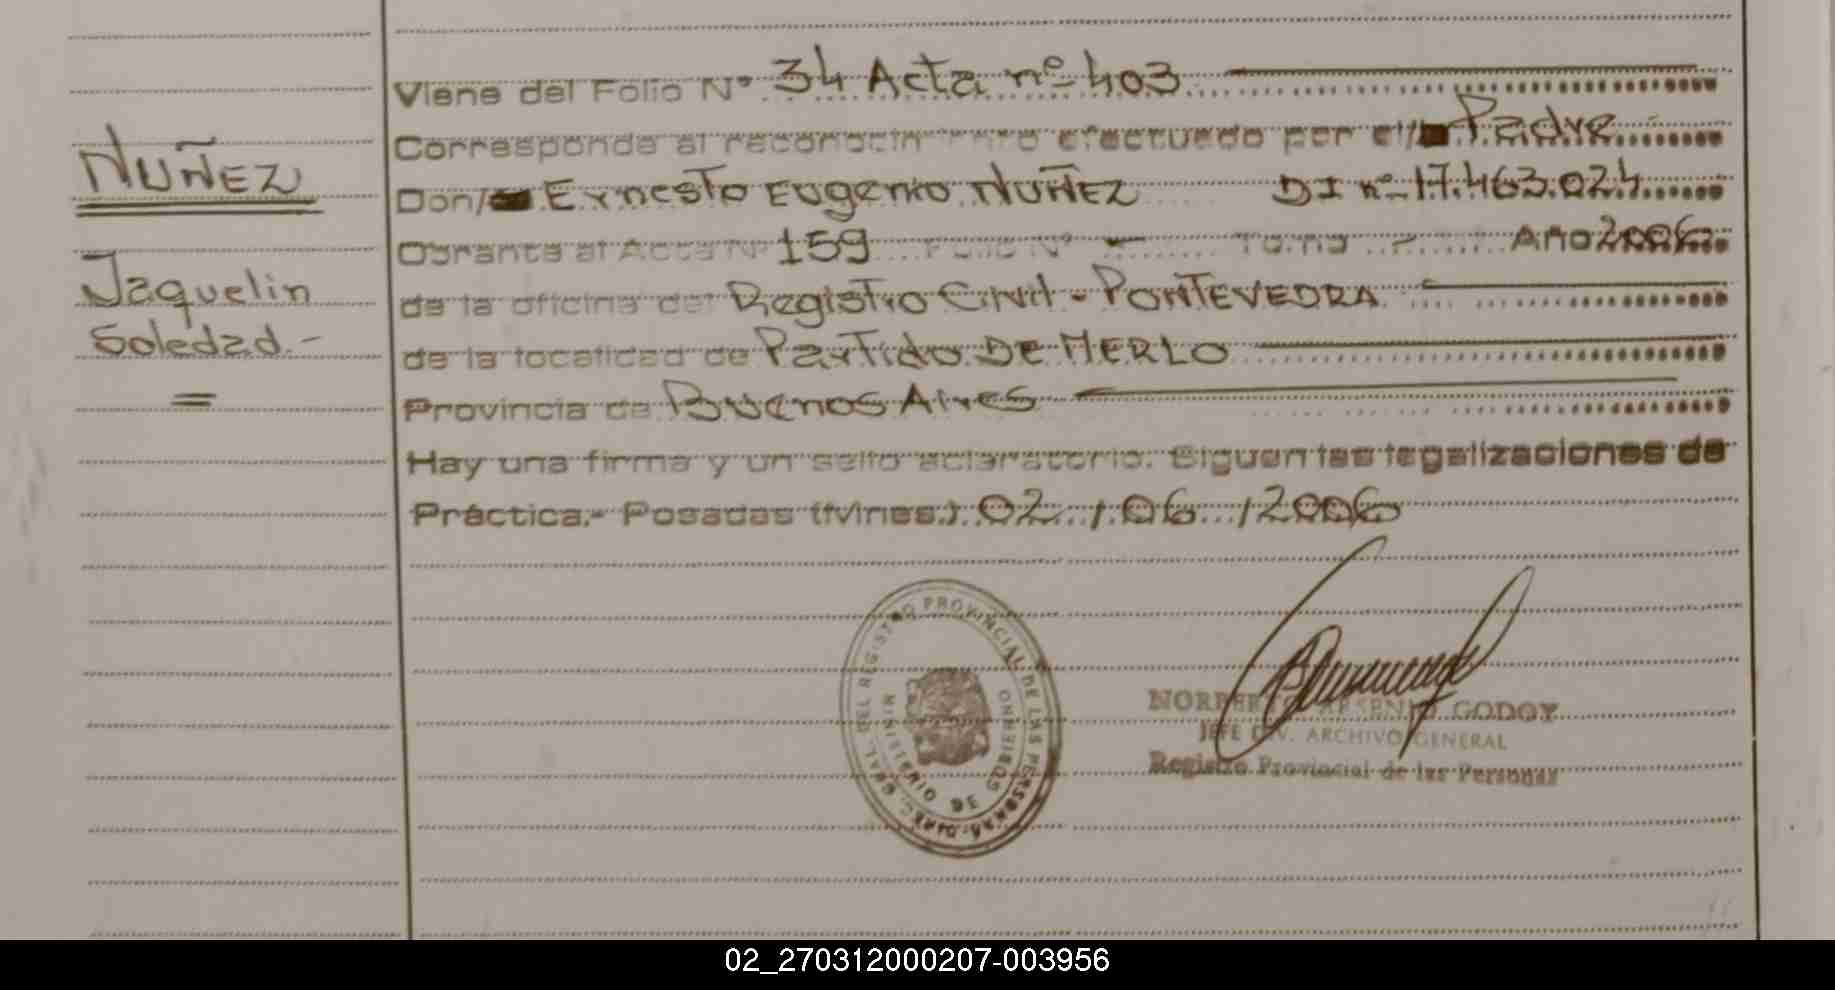 Viene del Folio Nº 34 Acta nº 403
Corresponde al reconocimiento efectuado por el/ Padre
NUÑEZ
Don/ Ernesto Eugenio NUÑEZ DI nº 17.463.024
Obrante al Acta Nº 159 Folio Nº - Tomo - Año 2006
Jaquelin
de la oficina del Registro Civil - PONTEVEDRA
Soledad.-
de la localidad de Partido DE MERLO
Provincia de Buenos Aires
Hay una firma y un sello aclaratorio. Siguen las legalizaciones de
Práctica.- Posadas (Mnes.) 02 / 06 / 2006
DEL REGISTRO PROVINCIAL DE LAS PERSONAS
MINISTERIO DE GOBIERNO
NORBERTO ARSENIO GODOY
JEFE DIV. ARCHIVO GENERAL
Registro Provincial de las Personas
02_270312000207-003956